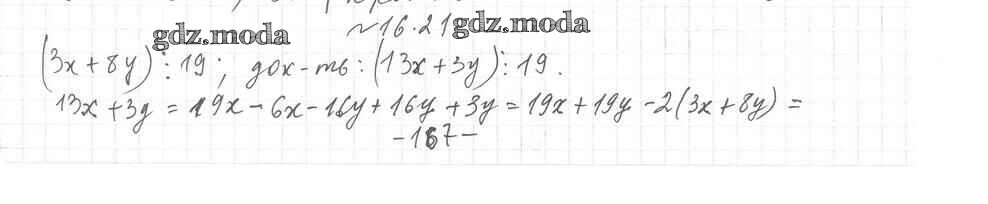 №16.21
gdz.moda gdz.moda
(3x + 8y) ⋮ 19; док-ть: (13x + 3y) ⋮ 19.
13x + 3y = 19x - 6x - 16y + 16y + 3y = 19x + 19y - 2(3x + 8y) =
- 167 -